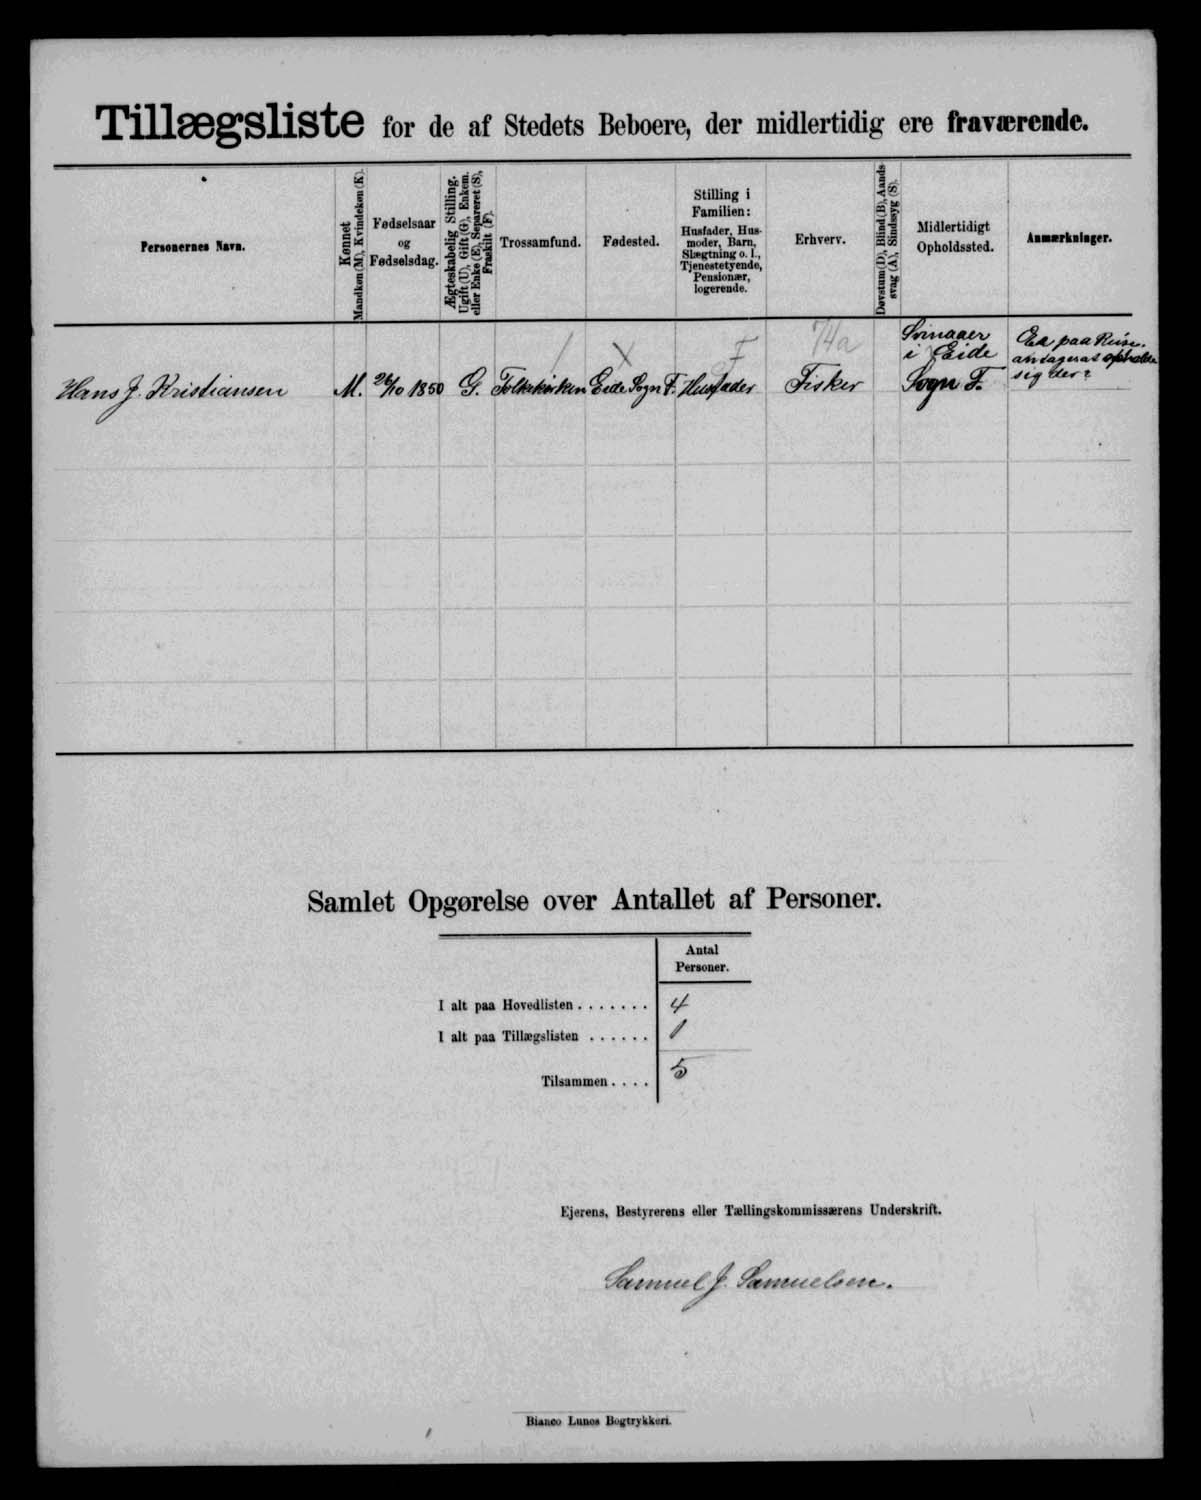 Tillægsliste for de af Stedets Beboere, der midlertidig ere fraværende.
Personernes Navn.
Kønnet
Mandkøn (M), Kvindekøn (K).
Fødselsaar
og
Fødselsdag.
Ægteskabelig Stilling.
Ugift (U), Gift (G), Enkem.
eller Enke (E), Separeret (S),
Fraskilt (F).
Trossamfund.
Fødested.
Stilling i
Familien:
Husfader, Hus-
moder, Barn,
Slægtning o. l.,
Tjenestetyende,
Pensionær,
logerende.
Erhverv.
Døvstum (D), Blind (B), Aands-
svag (A), Sindssyg (S).
Midlertidigt
Opholdssted.
Anmærkninger.
Hans J. Kristiansen
M.
26/10 1850
G.
Folkekirken
Eide Sogn F.
F
Husfader
74a
Fisker
Svinaaer
i Eide
Sogn F.
Er paa Reise.
antageras opholde
sig der?
Samlet Opgørelse over Antallet af Personer.
Antal
Personer.
I alt paa Hovedlisten . . . . . . . 4
I alt paa Tillægslisten . . . . . . 1
Tilsammen . . . . 5
Ejerens, Bestyrerens eller Tællingskommissærens Underskrift.
Samuel J. Samuelsen.
Bianco Lunos Bogtrykkeri.